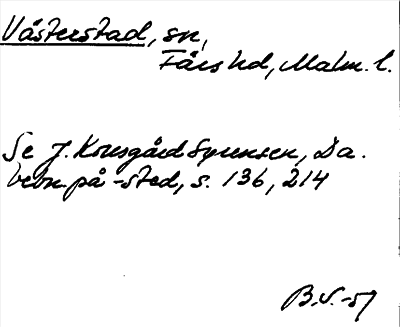 Västerstad, sn,
Färs hd, Malm. l.
Se J. Kousgård Sørensen, Da.
bebn. på -sted, s. 136, 214
B.S.-57